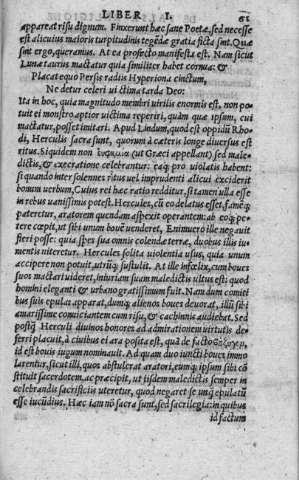 LIBER I. 61
appareat risu dignum. Finxerunt hæc sane Poetæ, sed necesse
est alicuius maioris turpitudinis tegēdæ gratia ficta sint. Quæ
sint ergo, quæramus. At ea profecto manifesta est. Nam sicut
Lunæ taurus mactatur quia similiter habet cornua: &
Placat equo Persis radiis Hyperiona cinctum,
Ne detur celeri uictima tarda Deo:
Ita in hoc, quia magnitudo membri uirilis enormis est, non po-
tuit ei monstro aptior uictima reperiri, quàm quæ ipsum, cui
mactatur, posset imitari. Apud Lindum, quod est oppidū Rho-
di, Herculis sacra sunt, quorum à cæteris longe diuersus est
ritus. Siquidem non (ut Græci appellant) sed male-
dictis, & execratione celebrantur: eaq́; pro uiolatis habent:
si quando inter solennes ritus uel imprudenti alicui exciderit
bonum uerbum, Cuius rei hæc ratio redditur, si tamen ulla esse
in rebus uanissimis potest. Hercules, cū eo delatus esset, famēq́;
pateretur, aratorem quendam aspexit operantem: ab eoq́; pe-
tere cœpit, ut sibi unum bouē uenderet, Enimuero ille negauit
fieri posse: quia spes sua omnis colendæ terræ, duobus illis iu-
mentis niteretur. Hercules solita uiolentia usus, quia unum
accipere non potuit, utrūq; sustulit. At ille infœlix, cum boues
suos mactari uideret, iniuriam suam maledictis ultus est: quod
homini eleganti & urbano gratissimum fuit. Nam dum comiti
bus suis epulas apparat, dumq; alienos boues deuorat, illū sibi
amarissime conuiciantem cum risu, & cachinnis audiebat. Sed
postq̄ Herculi diuinos honores ob admirationem uirtutis de-
ferri placuit, à ciuibus ei ara posita est, quā de facto
id est bouis iugum nominauit. Ad quam duo iuncti boues immo
larentur, sicut illi, quos abstulerat aratori, eumq́; ipsum sibi cō
stituit sacerdotem, ac præcipit, ut iisdem maledictis semper in
celebrandis sacrificiis uteretur, quod negaret se unq̄ epulatū
esse iucūdius. Hæc iam nō sacra sunt, sed sacrilegia: in quibus
id factum